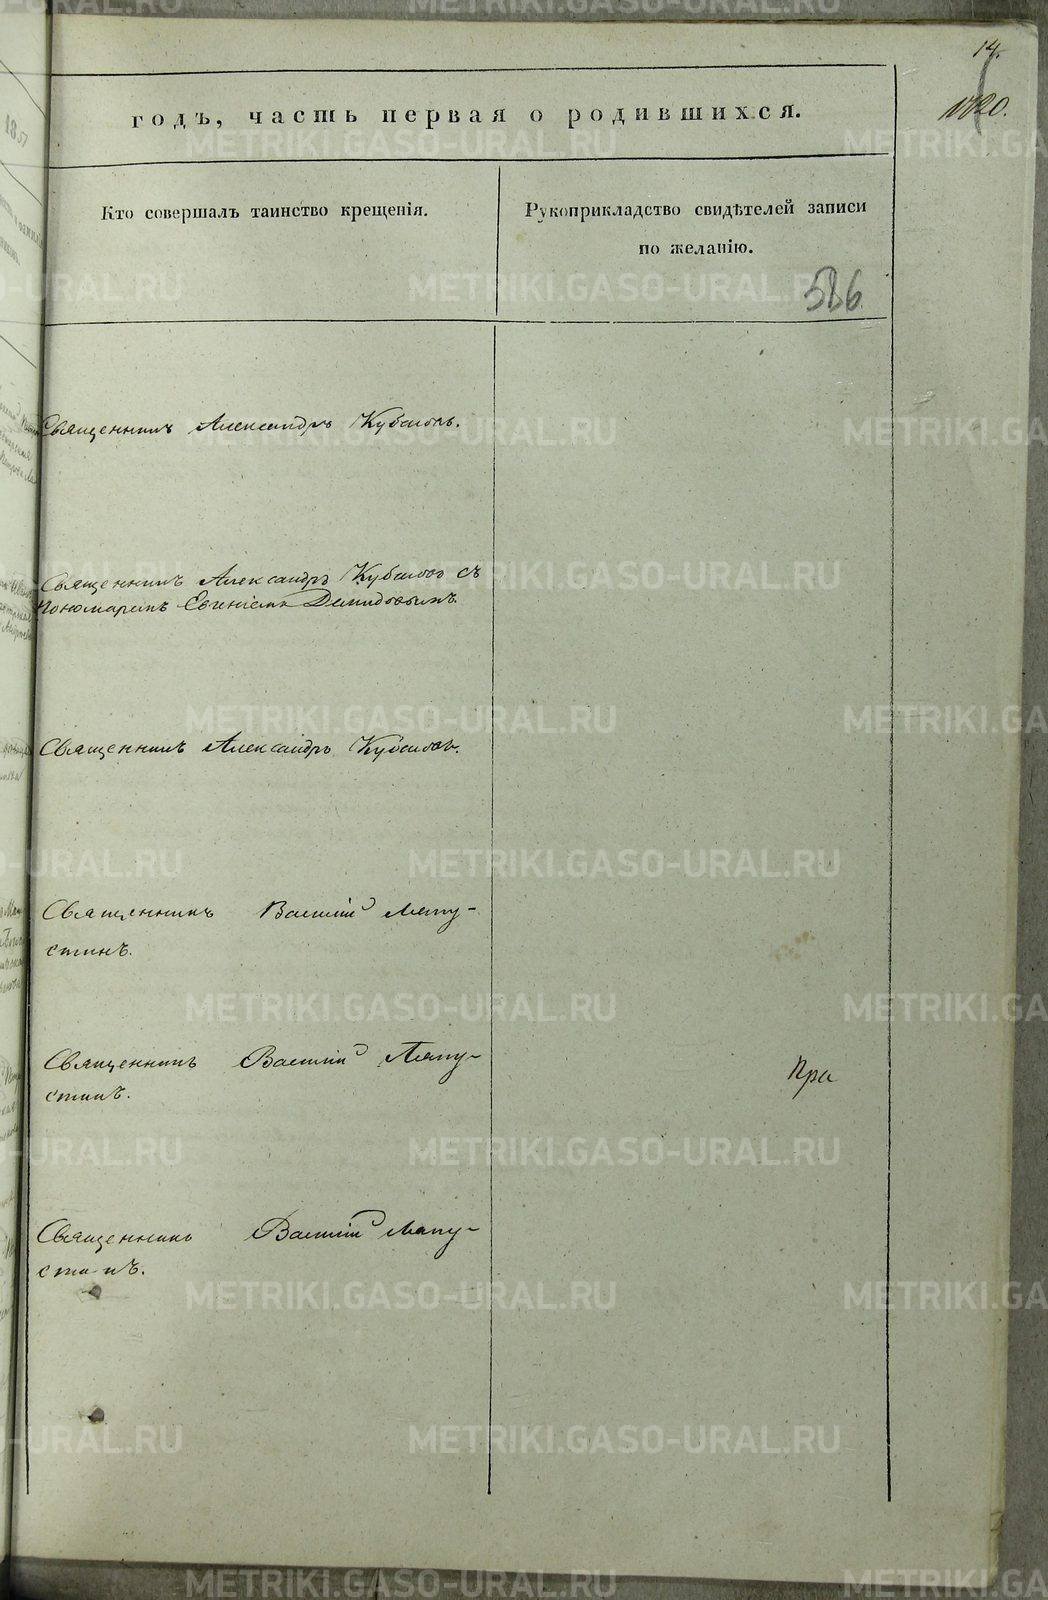 14.
1820.
годъ, часть первая о родившихся.
Кто совершалъ таинство крещенія.
Рукоприкладство свидѣтелей записи
по желанію.
586
Священникъ Александръ Кубасовъ.
Священникъ Александръ Кубасовъ съ
Пономаремъ Евгеніемъ Демидовымъ.
Священникъ Александръ Кубасовъ.
Священникъ Василій Ляпу-
стинъ.
Священникъ Василій Ляпу-
стинъ.
Пра
Священникъ Василій Ляпу-
стинъ.
METRIKI.GASO-URAL.RU